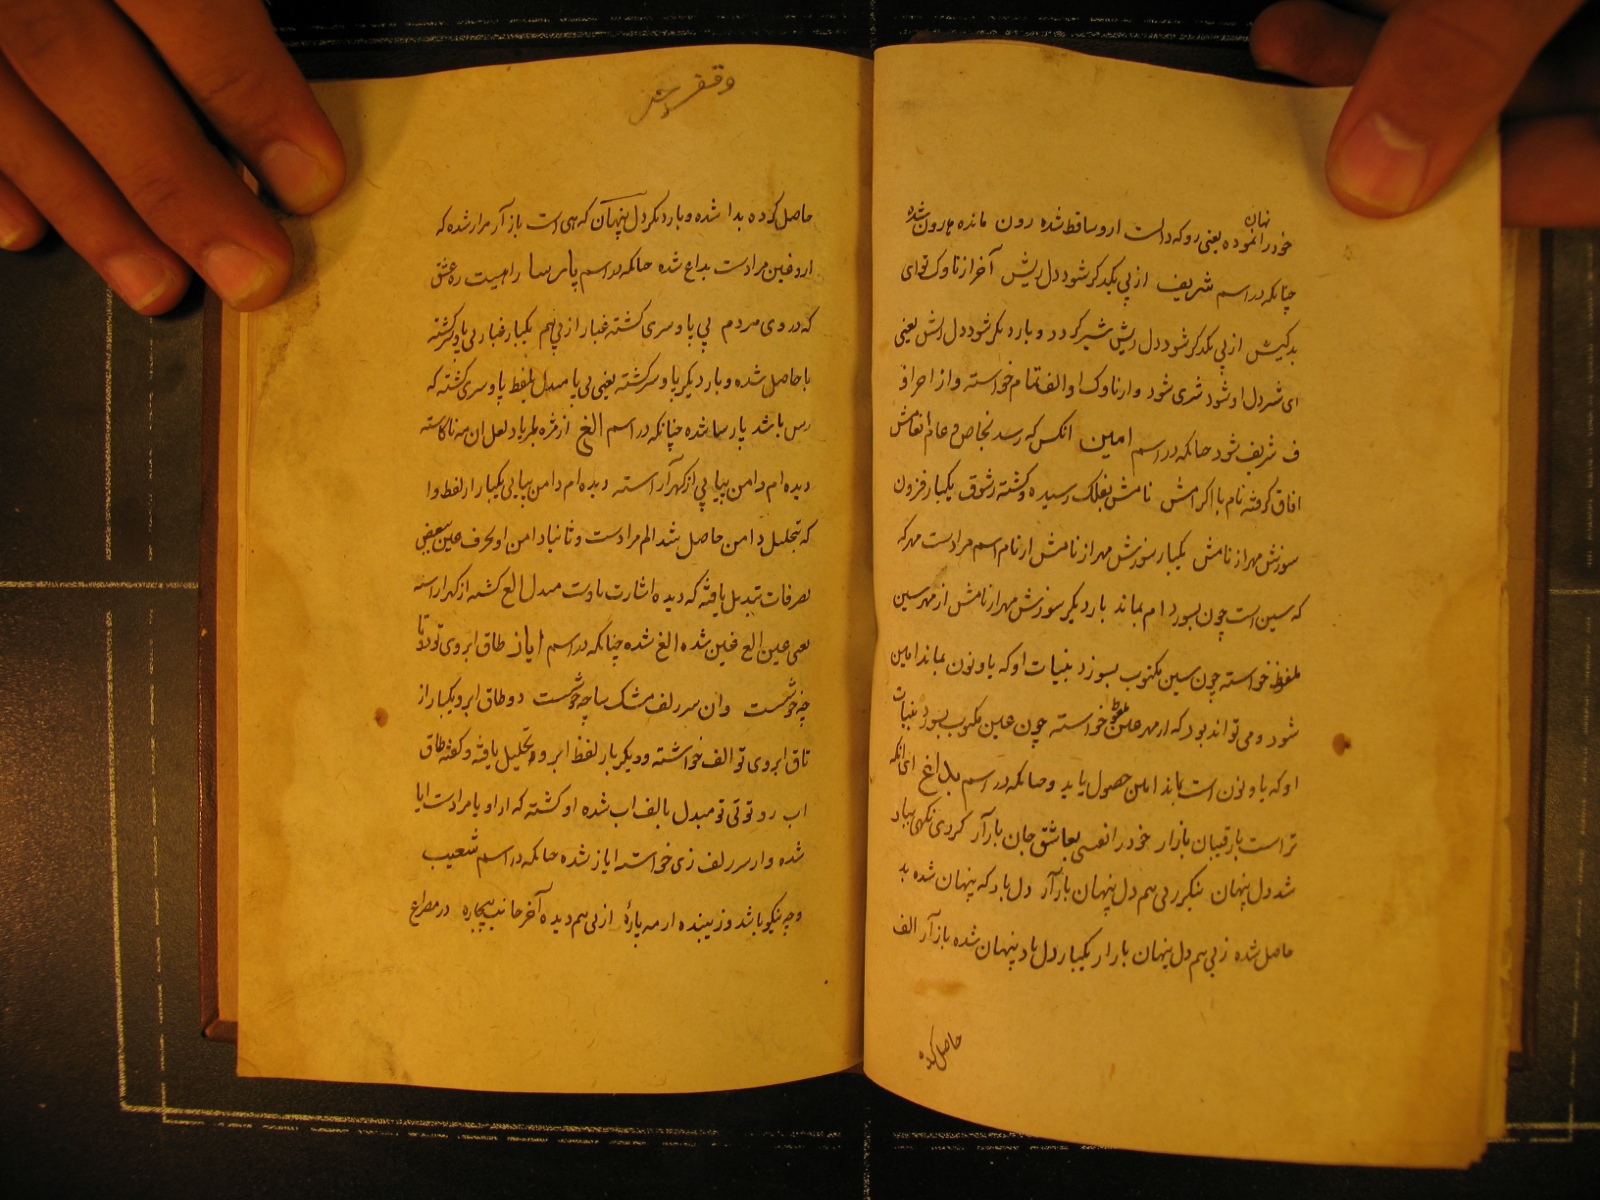 نهان
خود را نموده یعنی رو که دالست ازو ساقط شده رون مانده هارون شده
چنانکه در اسم شریف از پی یکدگر شود دل ریش آخر از ناوک تو ای
بدکیش از پی یکدگر شود دل ریش شیر گردد و بار دیگر شود دل اش یعنی
ای شر دل او شود شری شود و از ناوک او الف تمام خواسته و از آخر او
ف شریف شود چنانکه در اسم امین انکس که رسد بخاص و عام انعامش
افاق گرفته نام با اکرامش نامش بفلک رسیده و گشته ز شوق یکبار فزون
سوزش مهر از نامش یکبار سوزش مهر از نامش از نام اسم مرادست مهر که
که سین است چون بسوزد ام بماند بار دیگر سوزش مهر از نامش از مهر سین
ملفوظ خواسته چون سین مکتوب بسوزد بینات او که یا و نون بماند امین
شود و می تواند بود که از مهر عین ملفوظ خواسته چون عین مکتوب بسوزد بینات
او که یا و نون است بماند امین حصول یابد و چنانکه در اسم بداغ ای انکه
تراست با رقیبان بازار خود را نفسی بعاشق جان بازآر کردی نگهی بباد
شد دل پنهان بنگر ز پی هم دل پنهان بازآر دل باد که پنهان شده بد
حاصل شده ز پی هم دل پنهان بازار یکبار دل باد پنهان شده باز آر الف
حاصل کرده
حاصل کرده بدا شده و بار دیگر دل پنهان که هی است باز آر مراد شده که
ازو غین مرادست بداغ شده چنانکه در اسم پارسا راهیست ره عشق
که در وی مردم بی پا و سری گشته غبار از پی هم یکبار غبار بی پا و سر گشته
با حاصل شده و بار دیگر پا و سر گشته یعنی بی پا مبدل بلفظ پا و سری گشته که
رس باشد پارسا شده چنانکه در اسم الغ از مژه بهر پاد لعل ان مه ناکاسته
دیده ام دامن پیاپی از گهر آراسته دیده ام دامن پیاپی یکبار از لفظ وا
که بتحلیل دامن حاصل شد الم مرادست و ثانیا دامن او بحرف عین ببعض
تصرفات تبدیل یافته که دیده اشارت باوست مبدل الع گشته از گهر اراسته
یعنی عین الع غین شده الغ شده چنانکه در اسم ایاز طاق ابروی تو دوتا
چه خوشست وان سر زلف مشک سا چه خوشست دو طاق ابرو یکبار از
تاق ابروی تو الف خواسته و دیگر بار لفظ ابرو تحلیل یافته و گفته طاق
اب رو تو تی تو مبدل بالف اب شده او گشته که از او یا مرادست ایا
شده و از سر زلف زی خواسته ایاز شده چنانکه در اسم شعیب
وجه نیکو باشد و زیبنده از مه پاره از پی هم دیده آخر جانب بیچاره در مصراع